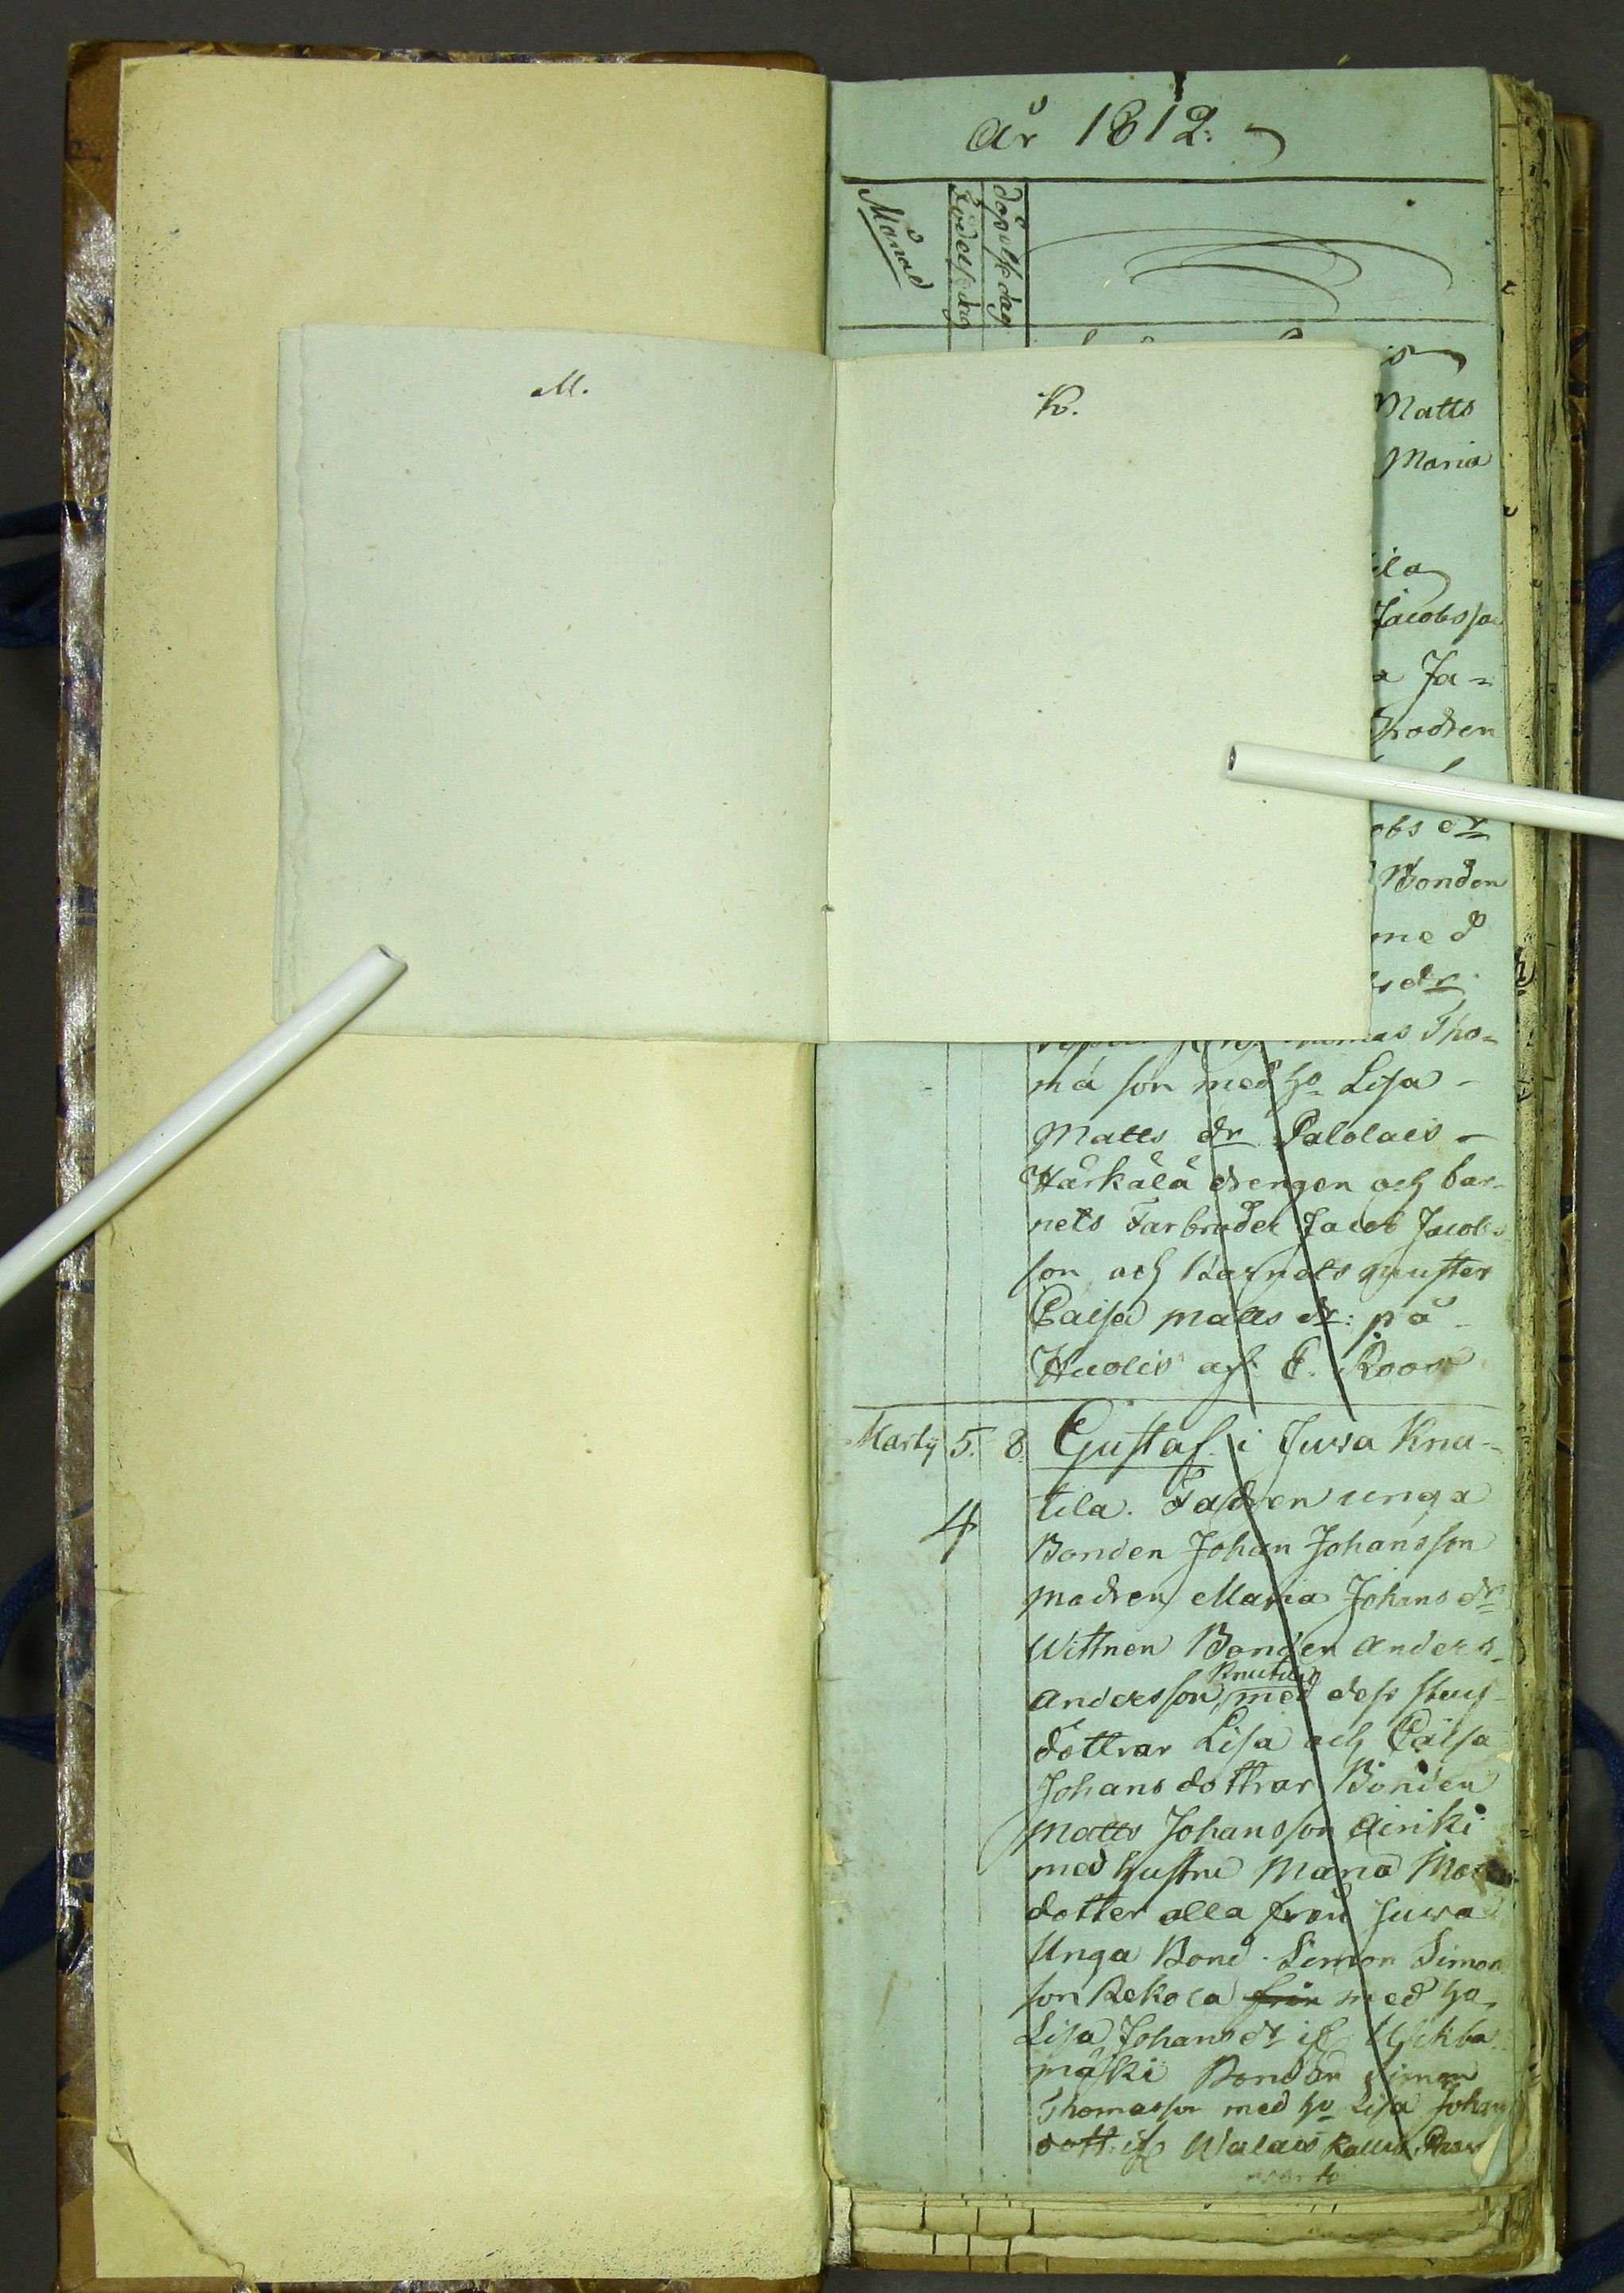 År 1812.
Månad
Födelse dag
döpelse dag
M.
K.
Matts
Maria
ila
Jacobsson
a Ja-
Modren
obs dr
Bonden
med
dr
Thomas Tho-
mä son med ho Lisa
Matts dr Palolais
Härkälä drengen och bar-
nets Farbroder Jacob Jacobs
son och Barnets muster
Caisa Matts dr: på
Huolis af E. Roos
Martij 5. 8. Gustaf i Juva Knu-
tila. Fadren unga
4
Bonden Johan Johansson
modren Maria Johans dr
Wittnen Bonden Anders
Andersson Knutila med dess stuf
döttrar Lisa och Caisa
Johans döttrar Bonden
Matts Johansson Airiki
med hustru Maria
dotter alla från Juva
Unga Bond. Simon Simon
son Rekola från med ho
Lisa Johans dr if
mäki Bonden Simon
Thomasson med ho Lisa Johans
dott. if Walais